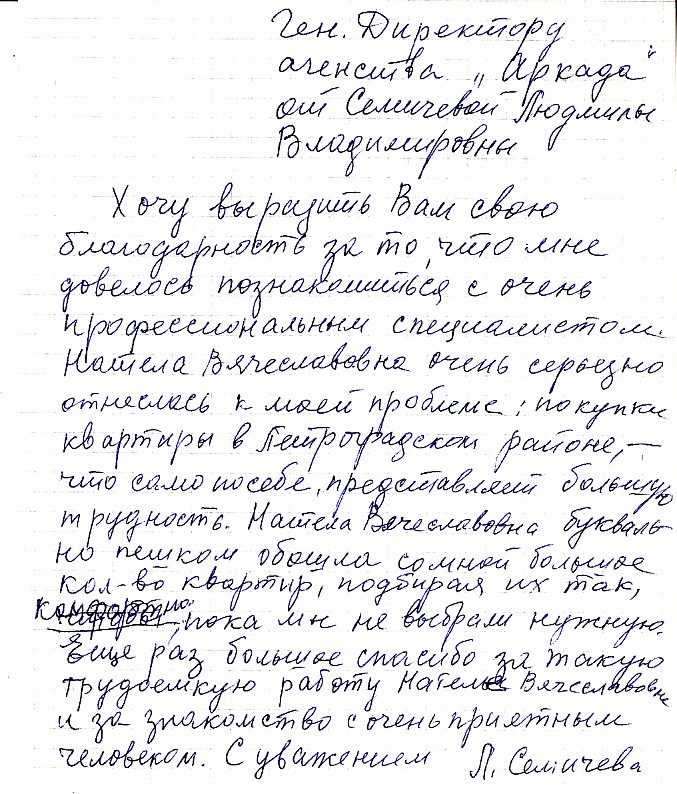 Ген. Директору
агенства „Аркада"
от Семичевой Людмилы
Владимировны
Хочу выразить Вам свою
благодарность за то, что мне
довелось познакомиться с очень
профессиональным специалистом.
Натела Вячеславовна очень серьезно
отнеслась к моей проблеме: покупки
квартиры в Петроградском районе, —
что само посебе, представляет большую
трудность. Натела Вячеславовна букваль-
но пешком обошла со мной большое
кол-во квартир, подбирая их так,
комфортно, пока мы не выбрали нужную.
Еще раз большое спасибо за такую
трудоемкую работу Нателе Вячеславовне
и за знакомство с очень приятным
человеком. С уважением Л. Семичева